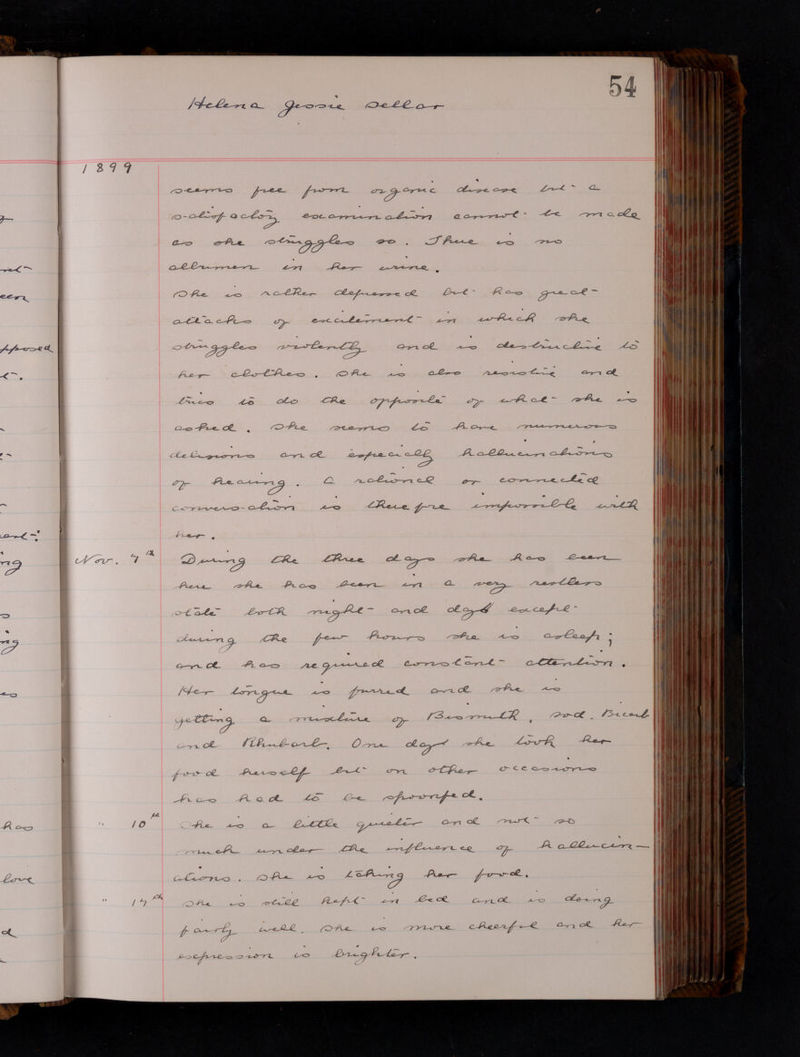 54
Helena Jessie Sellar
1899
seems free from organic disease but a
satisfactory examination cannot be made
as she struggles so. There is no
albumen in her urine.
She is rather depressed but has great
attacks of excitement in which she
struggles violently and is destructive to
her clothes. She is also resistive and
tries to do the opposite of what she is
asked. She seems to have numerous
delusions and especially hallucinations
of hearing. A rational or connected
conversation is therefore impossible with
her.
Nov. 7th During the three days she has been
here she has been in a very restless
state both night and day except
during the few hours she is asleep;
and has required constant attention.
Her tongue is furred and she is
getting a mixture of Bismuth, Sod. Bicarb
and Rhubarb. One day she took her
food herself but on other occasions
has had to be spoonfed.
" 10th She is a little quieter and not so
much under the influence of hallucin-
ations. She is taking her food.
" 14th She is still kept in bed and is doing
fairly well. She is more cheerful and her
expression is brighter.